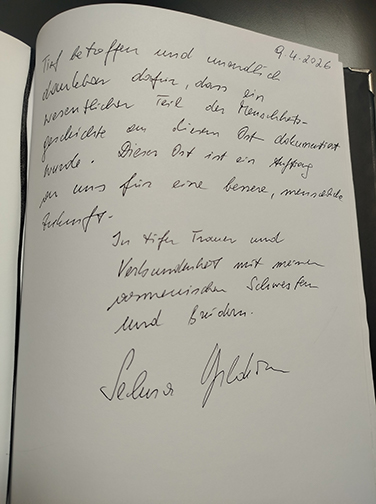 9.4.2026
Tief betroffen und unendlich
dankbar dafür, dass ein
wesentlicher Teil der Menschheits-
geschichte an diesem Ort dokumentiert
wurde. Dieser Ort ist ein Auftrag
an uns für eine bessere, menschliche
Zukunft.
In tiefer Trauer und
Verbundenheit mit meinen
armenischen Schwestern
und Brüdern.